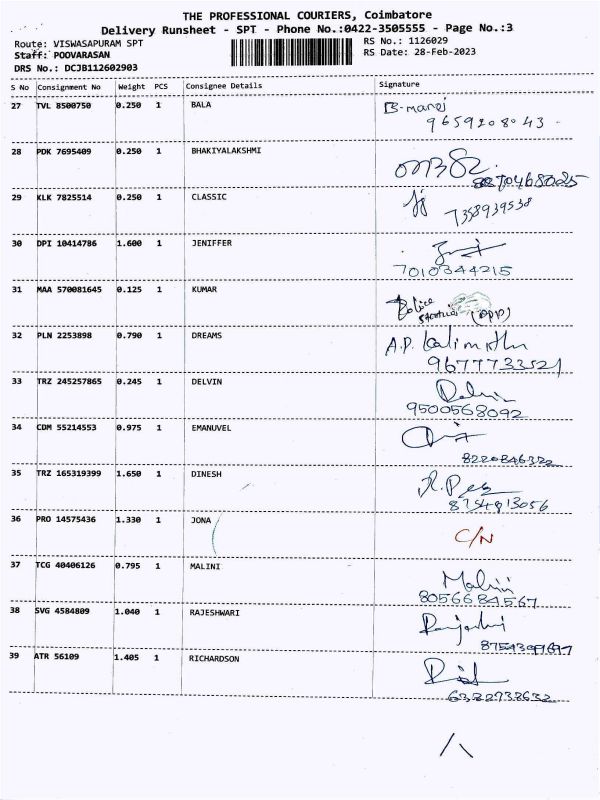 THE PROFESSIONAL COURIERS, Coimbatore
Delivery Runsheet - SPT - Phone No.:0422-3505555 - Page No.:3
Route: VISWASAPURAM SPT
RS No.: 1126029
Staff: POOVARASAN
RS Date: 28-Feb-2023
DRS No.: DCJB112602903
S No Consignment No Weight PCS Consignee Details Signature
27 TVL 8500750 0.250 1 BALA B-manoj
9659208043
28 PDK 7695409 0.250 1 BHAKIYALAKSHMI
29 KLK 7825514 0.250 1 CLASSIC
7358939538
30 DPI 10414786 1.600 1 JENIFFER
7010344215
31 MAA 570081645 0.125 1 KUMAR Police
Station (OPP)
32 PLN 2253898 0.790 1 DREAMS A.P.
9677733521
33 TRZ 245257865 0.245 1 DELVIN Delvin
9500568092
34 CDM 55214553 0.975 1 EMANUVEL
35 TRZ 165319399 1.650 1 DINESH
36 PRO 14575436 1.330 1 JONA C/N
37 TCG 40406126 0.795 1 MALINI Malini
8056684567
38 SVG 4584809 1.040 1 RAJESHWARI
39 ATR 56109 1.405 1 RICHARDSON